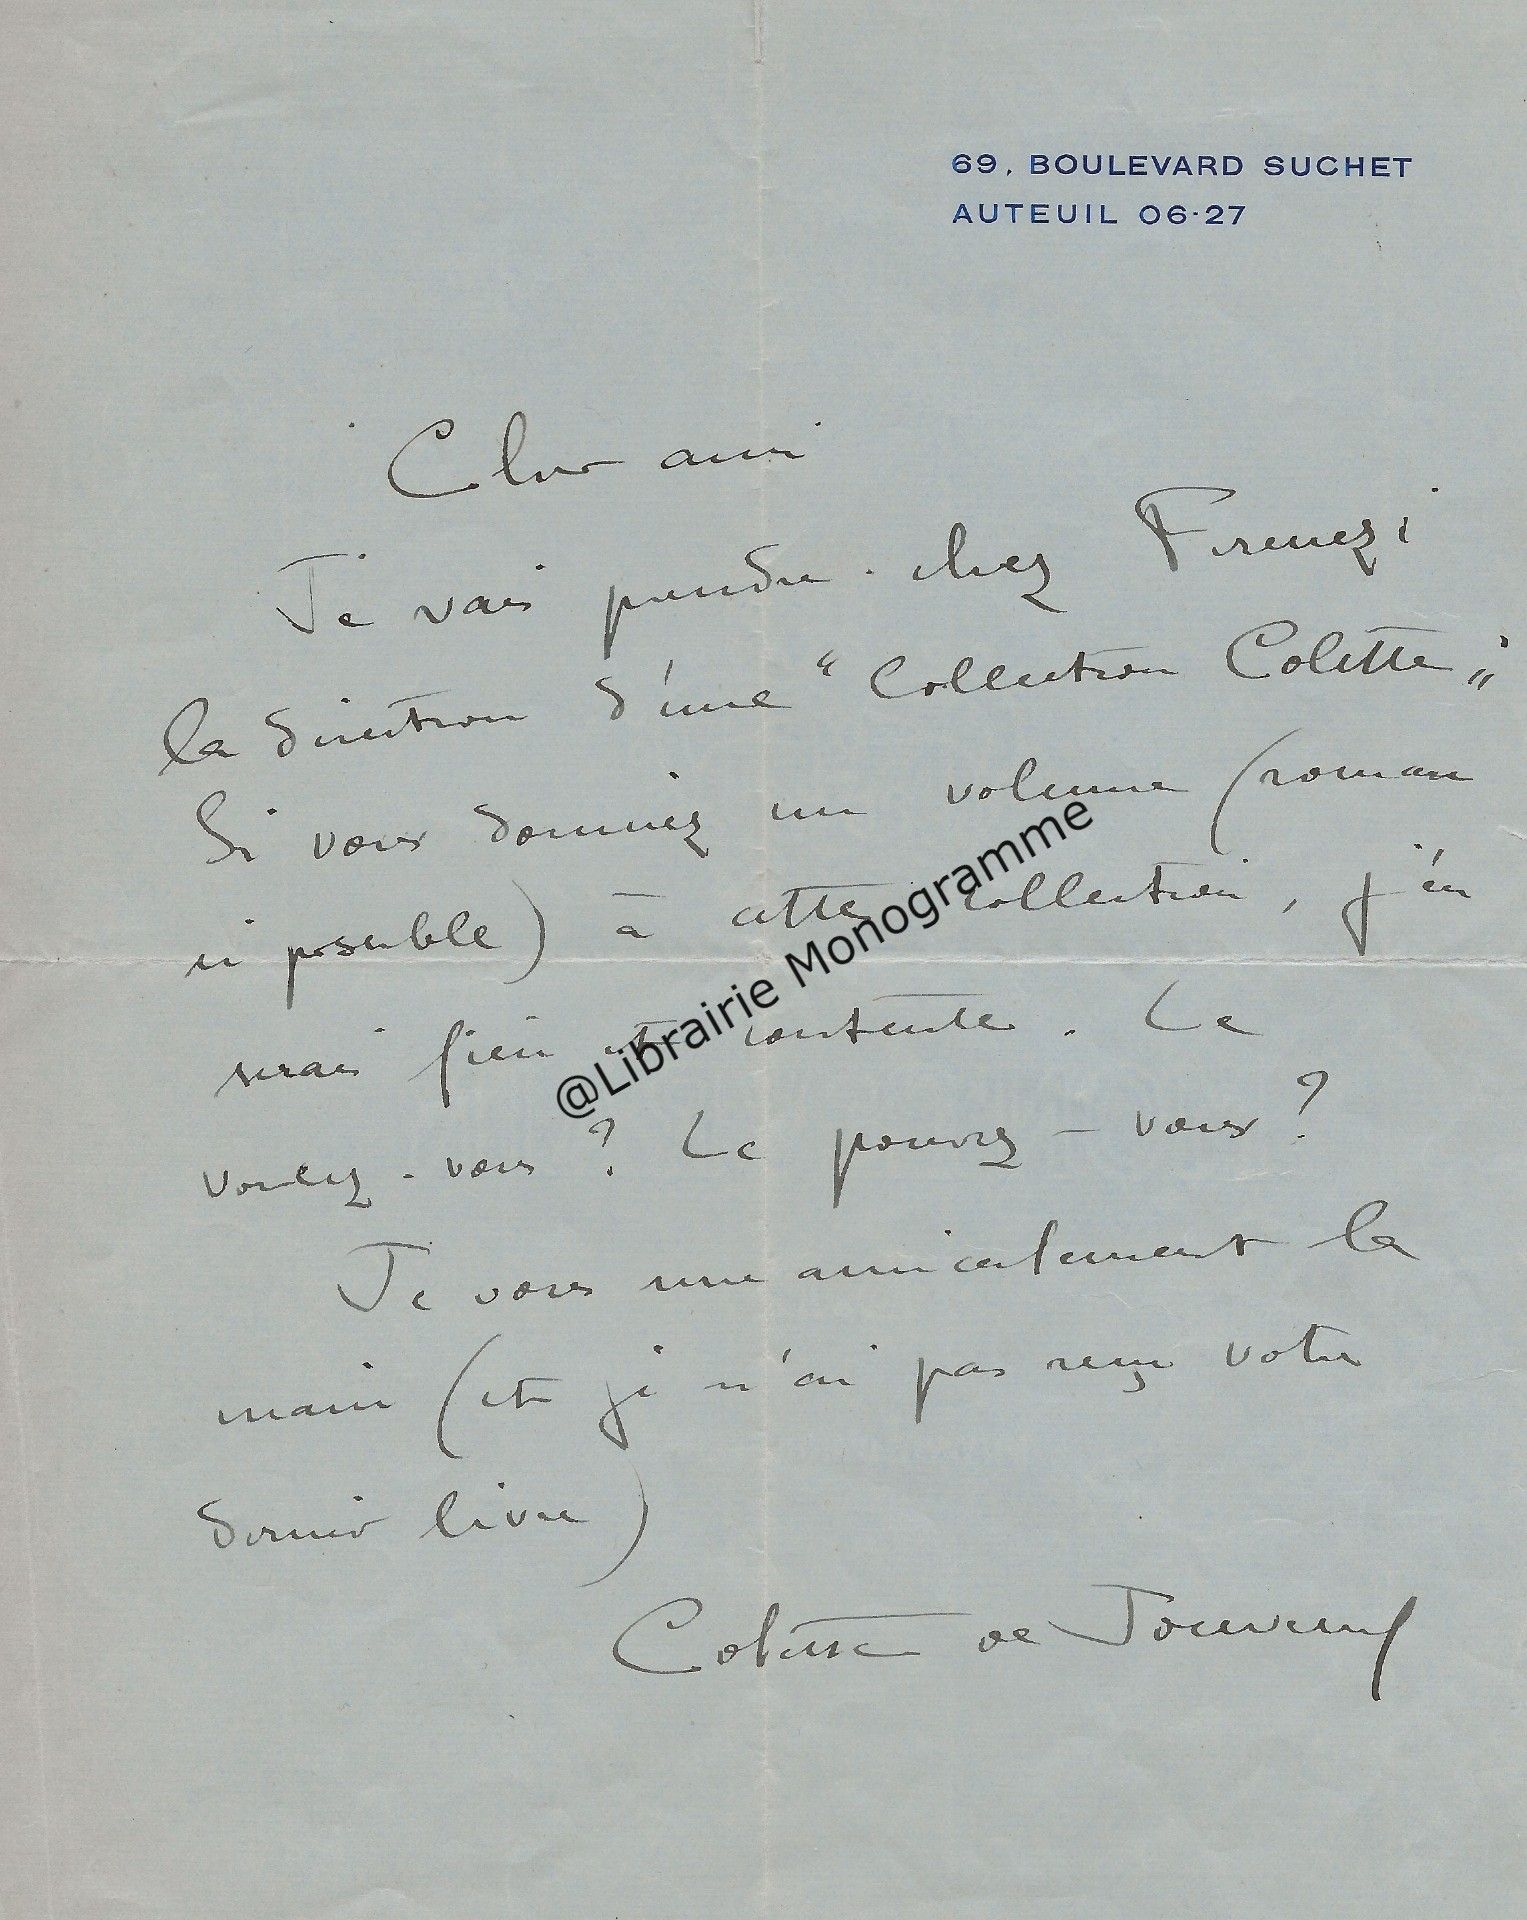 69, BOULEVARD SUCHET
AUTEUIL 06·27
Cher ami
Je vais prendre chez Ferenczi
la direction d'une "Collection Colette„
Si vous donniez un volume (roman
si possible) à cette collection, j'en
serais fière et contente. Le
voulez-vous ? Le pouvez-vous ?
Je vous serre amicalement la
main (et je n'ai pas reçu votre
dernier livre)
Colette de Jouvenel
@Librairie Monogramme